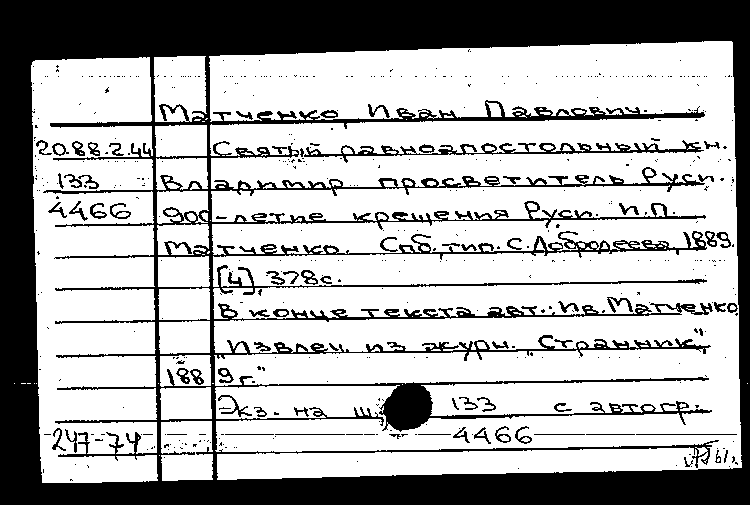 Матченко, Иван Павлович.
20.88.2.44 Святый равноапостольный кн.
133 Владимир просветитель Руси.
4466 900-летие крещения Руси. И.П.
Матченко. Спб, тип. С. Добродеева, 1889.
[4], 378с.
В конце текста авт.: Ив. Матченко
"Извлеч. из журн. "Странник",
1889г."
Экз. на ш. 133 с автогр.
247-74 4466